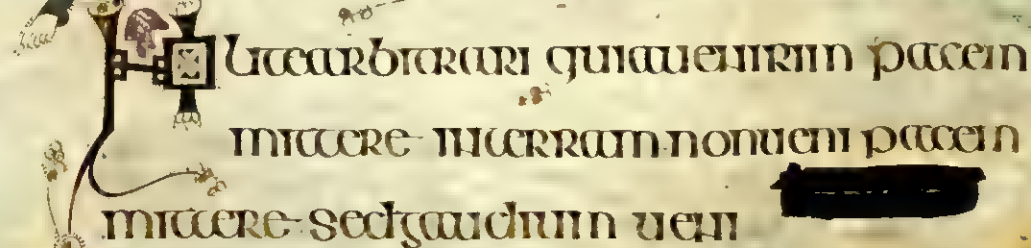 Nolitearbitrari quiauenirim pacem
mittere interram nonueni pacem
mittere sedgaudium ueni